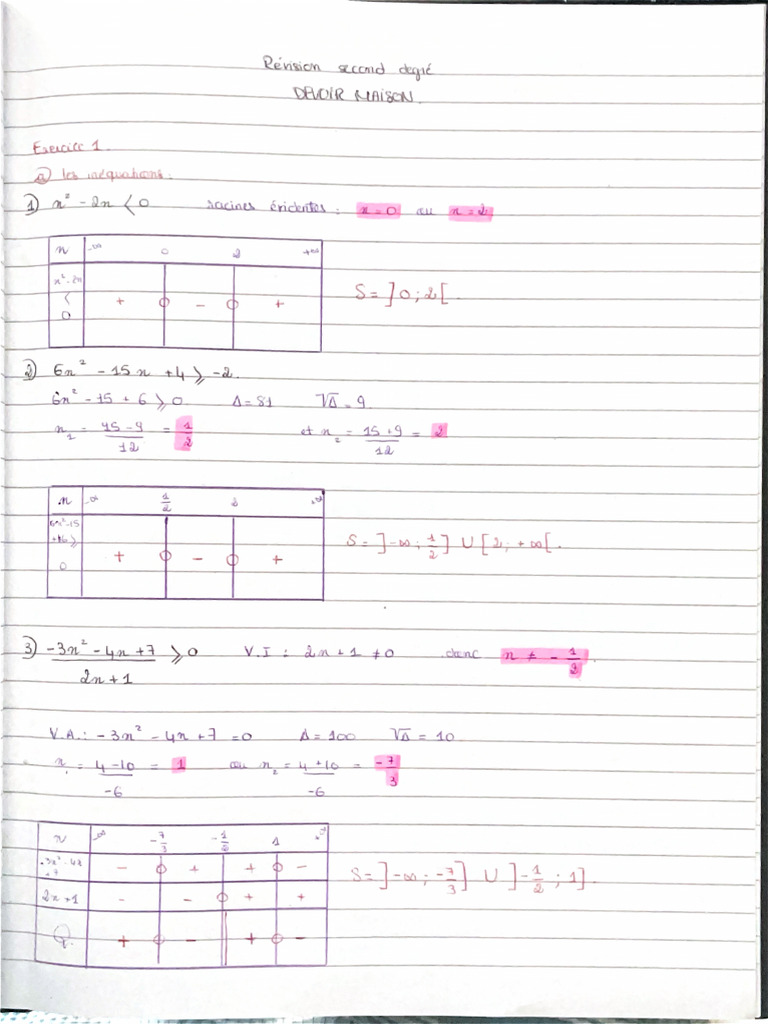 Révision second degré
DEVOIR MAISON.
Exercice 1.
a) les inéquations :
1) x² - 2x < 0 racines évidentes : x=0 ou x=2
x -∞ 0 2 +∞
x²-2x < 0 + 0 - 0 +
S = ]0 ; 2[.
2) 6x² - 15x + 4 ⩾ -2.
6x² - 15 + 6 ⩾ 0 Δ = 81 √Δ = 9
x₁ = (15 - 9)/12 = 1/2 et x₂ = (15 + 9)/12 = 2
x -∞ 1/2 2 +∞
6x²-15 +6 ⩾ 0 + 0 - 0 +
S = ]-∞ ; 1/2] U [2 ; +∞[.
3) (-3x² - 4x + 7)/(2x + 1) ⩾ 0 V.I : 2x + 1 ≠ 0 donc x ≠ -1/2.
V.A. : -3x² - 4x + 7 = 0 Δ = 100 √Δ = 10
x₁ = (4 - 10)/-6 = 1 ou x₂ = (4 + 10)/-6 = -7/3
x -∞ -7/3 -1/2 1 +∞
-3x²-4x +7 - 0 + + 0 -
2x+1 - - 0 + +
Q. + 0 - || + 0 -
S = ]-∞ ; -7/3] U ]-1/2 ; 1].